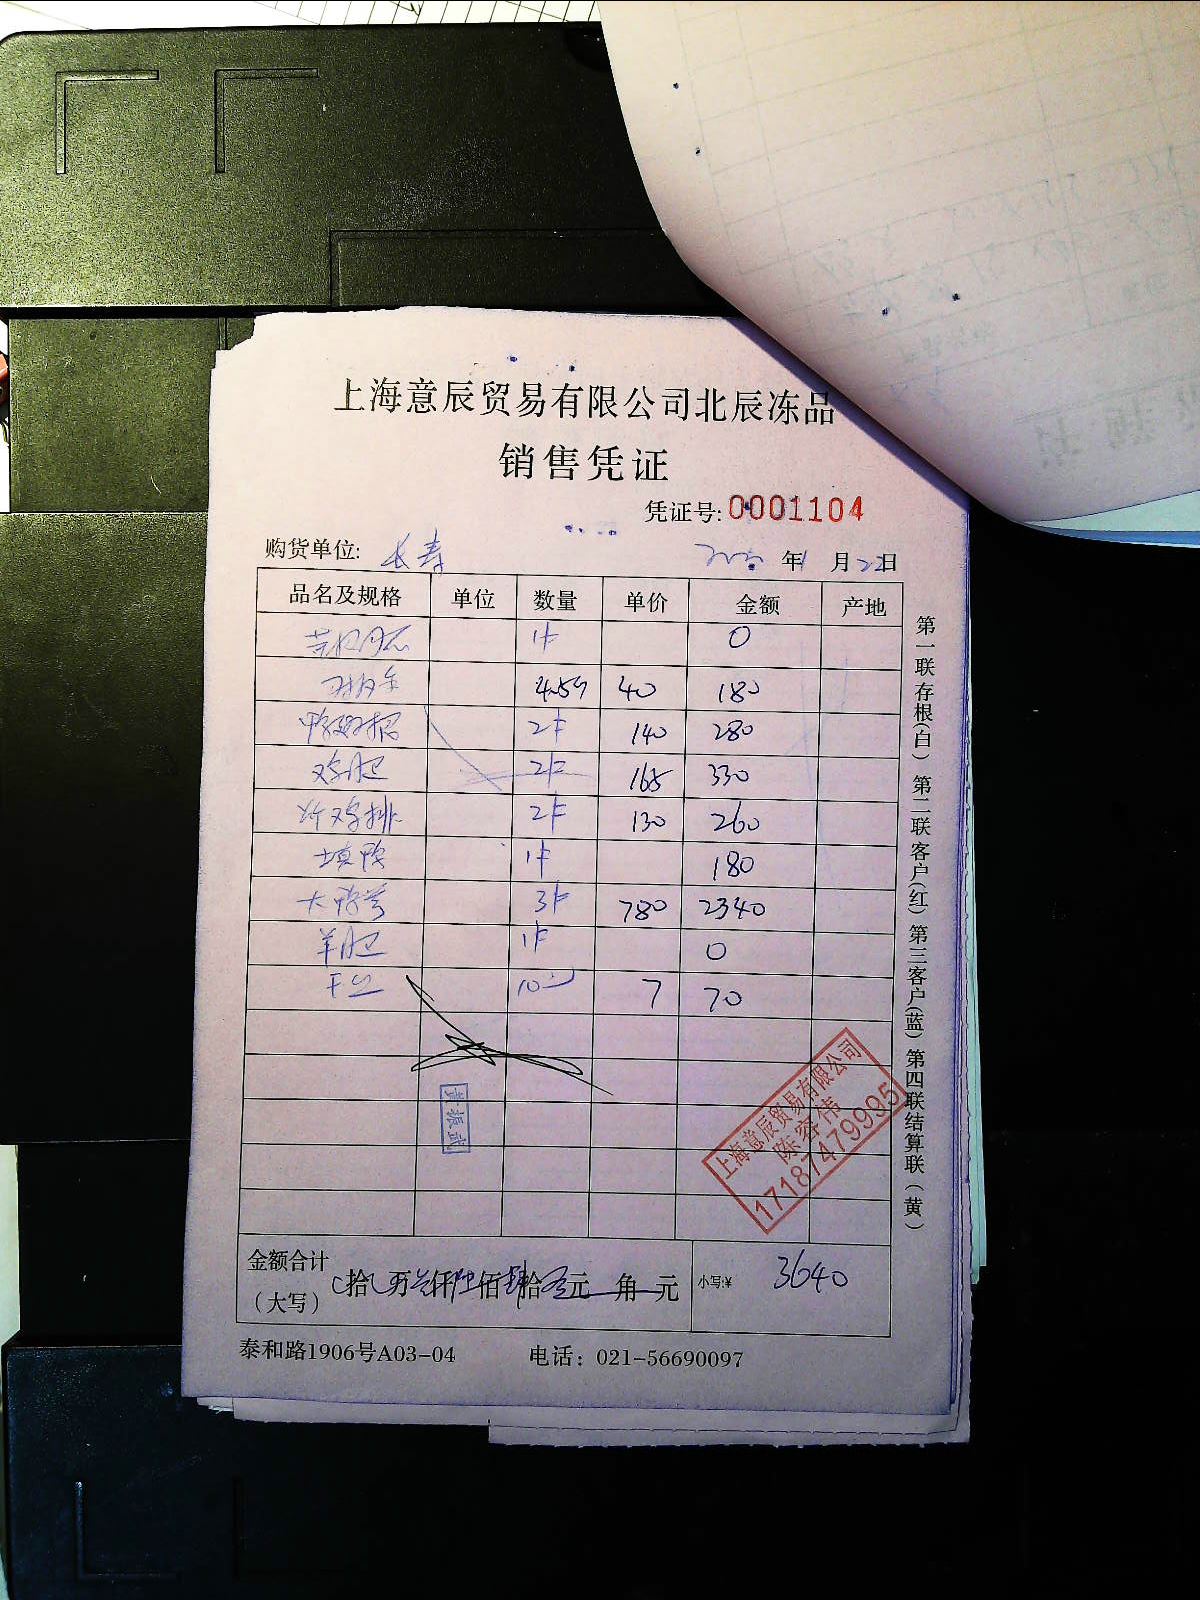 上海意辰贸易有限公司北辰冻品
销售凭证
凭证号:0001104
购货单位: 长寿 年 1 月 22 日
品名及规格 单位 数量 单价 金额 产地
1件 0
4.5斤 40 180
2件 140 280
鸡肫 2件 165 330
炸鸡排 2件 130 260
填鸭 1件 180
3件 780 2340
羊肚 1件 0
10 7 70
上海意辰贸易有限公司
陈容伟
17187479995
黄振武
金额合计
(大写) 拾 万 叁仟陆佰肆拾 元 角 元 小写:¥ 3640
泰和路1906号A03-04 电话: 021-56690097
第一联存根(白) 第二联客户(红) 第三客户(蓝) 第四联结算联(黄)